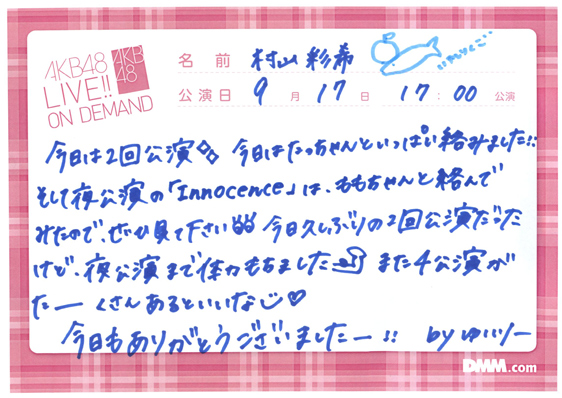 AKB48
LIVE!!
ON DEMAND
AKB
48
名前 村山彩希
公演日 9月17日 17:00公演
今日は2回公演 今日はたっちゃんといっぱい絡みました!!
そして夜公演の「Innocence」は、ももちゃんと絡んで
みたので、ぜひ見て下さい 今日久しぶりの2回公演だった
けど、夜公演まで体力もちました また4公演が
たーくさんあるといいなじ♡
今日もありがとうございましたー!! byゆいりー
DMM.com